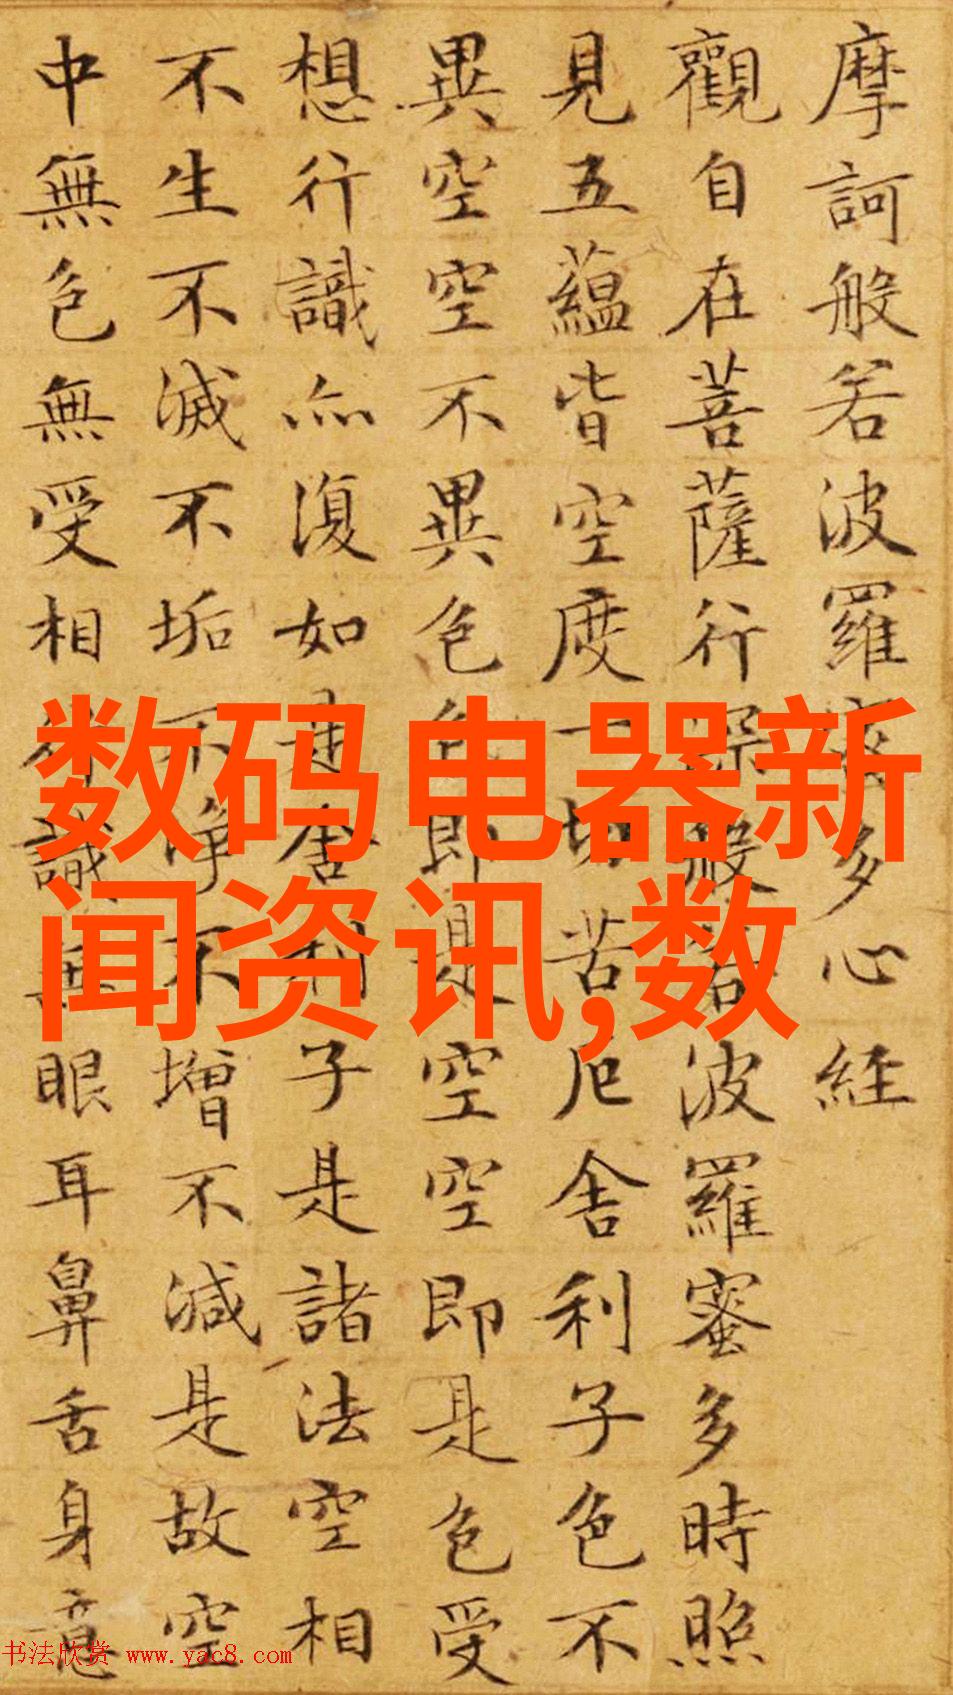 摩訶般若波羅蜜多心經
觀自在菩薩行深般若波羅蜜多時照
見五蘊皆空度一切苦厄舍利子色不
異空空不異色色即是空空即是色受
想行識亦復如是舍利子是諸法空相
不生不滅不垢不淨不增不減是故空
中無色無受相行識無眼耳鼻舌身意
数码电器新
闻资讯,数
书法欣赏 www.yac8.com